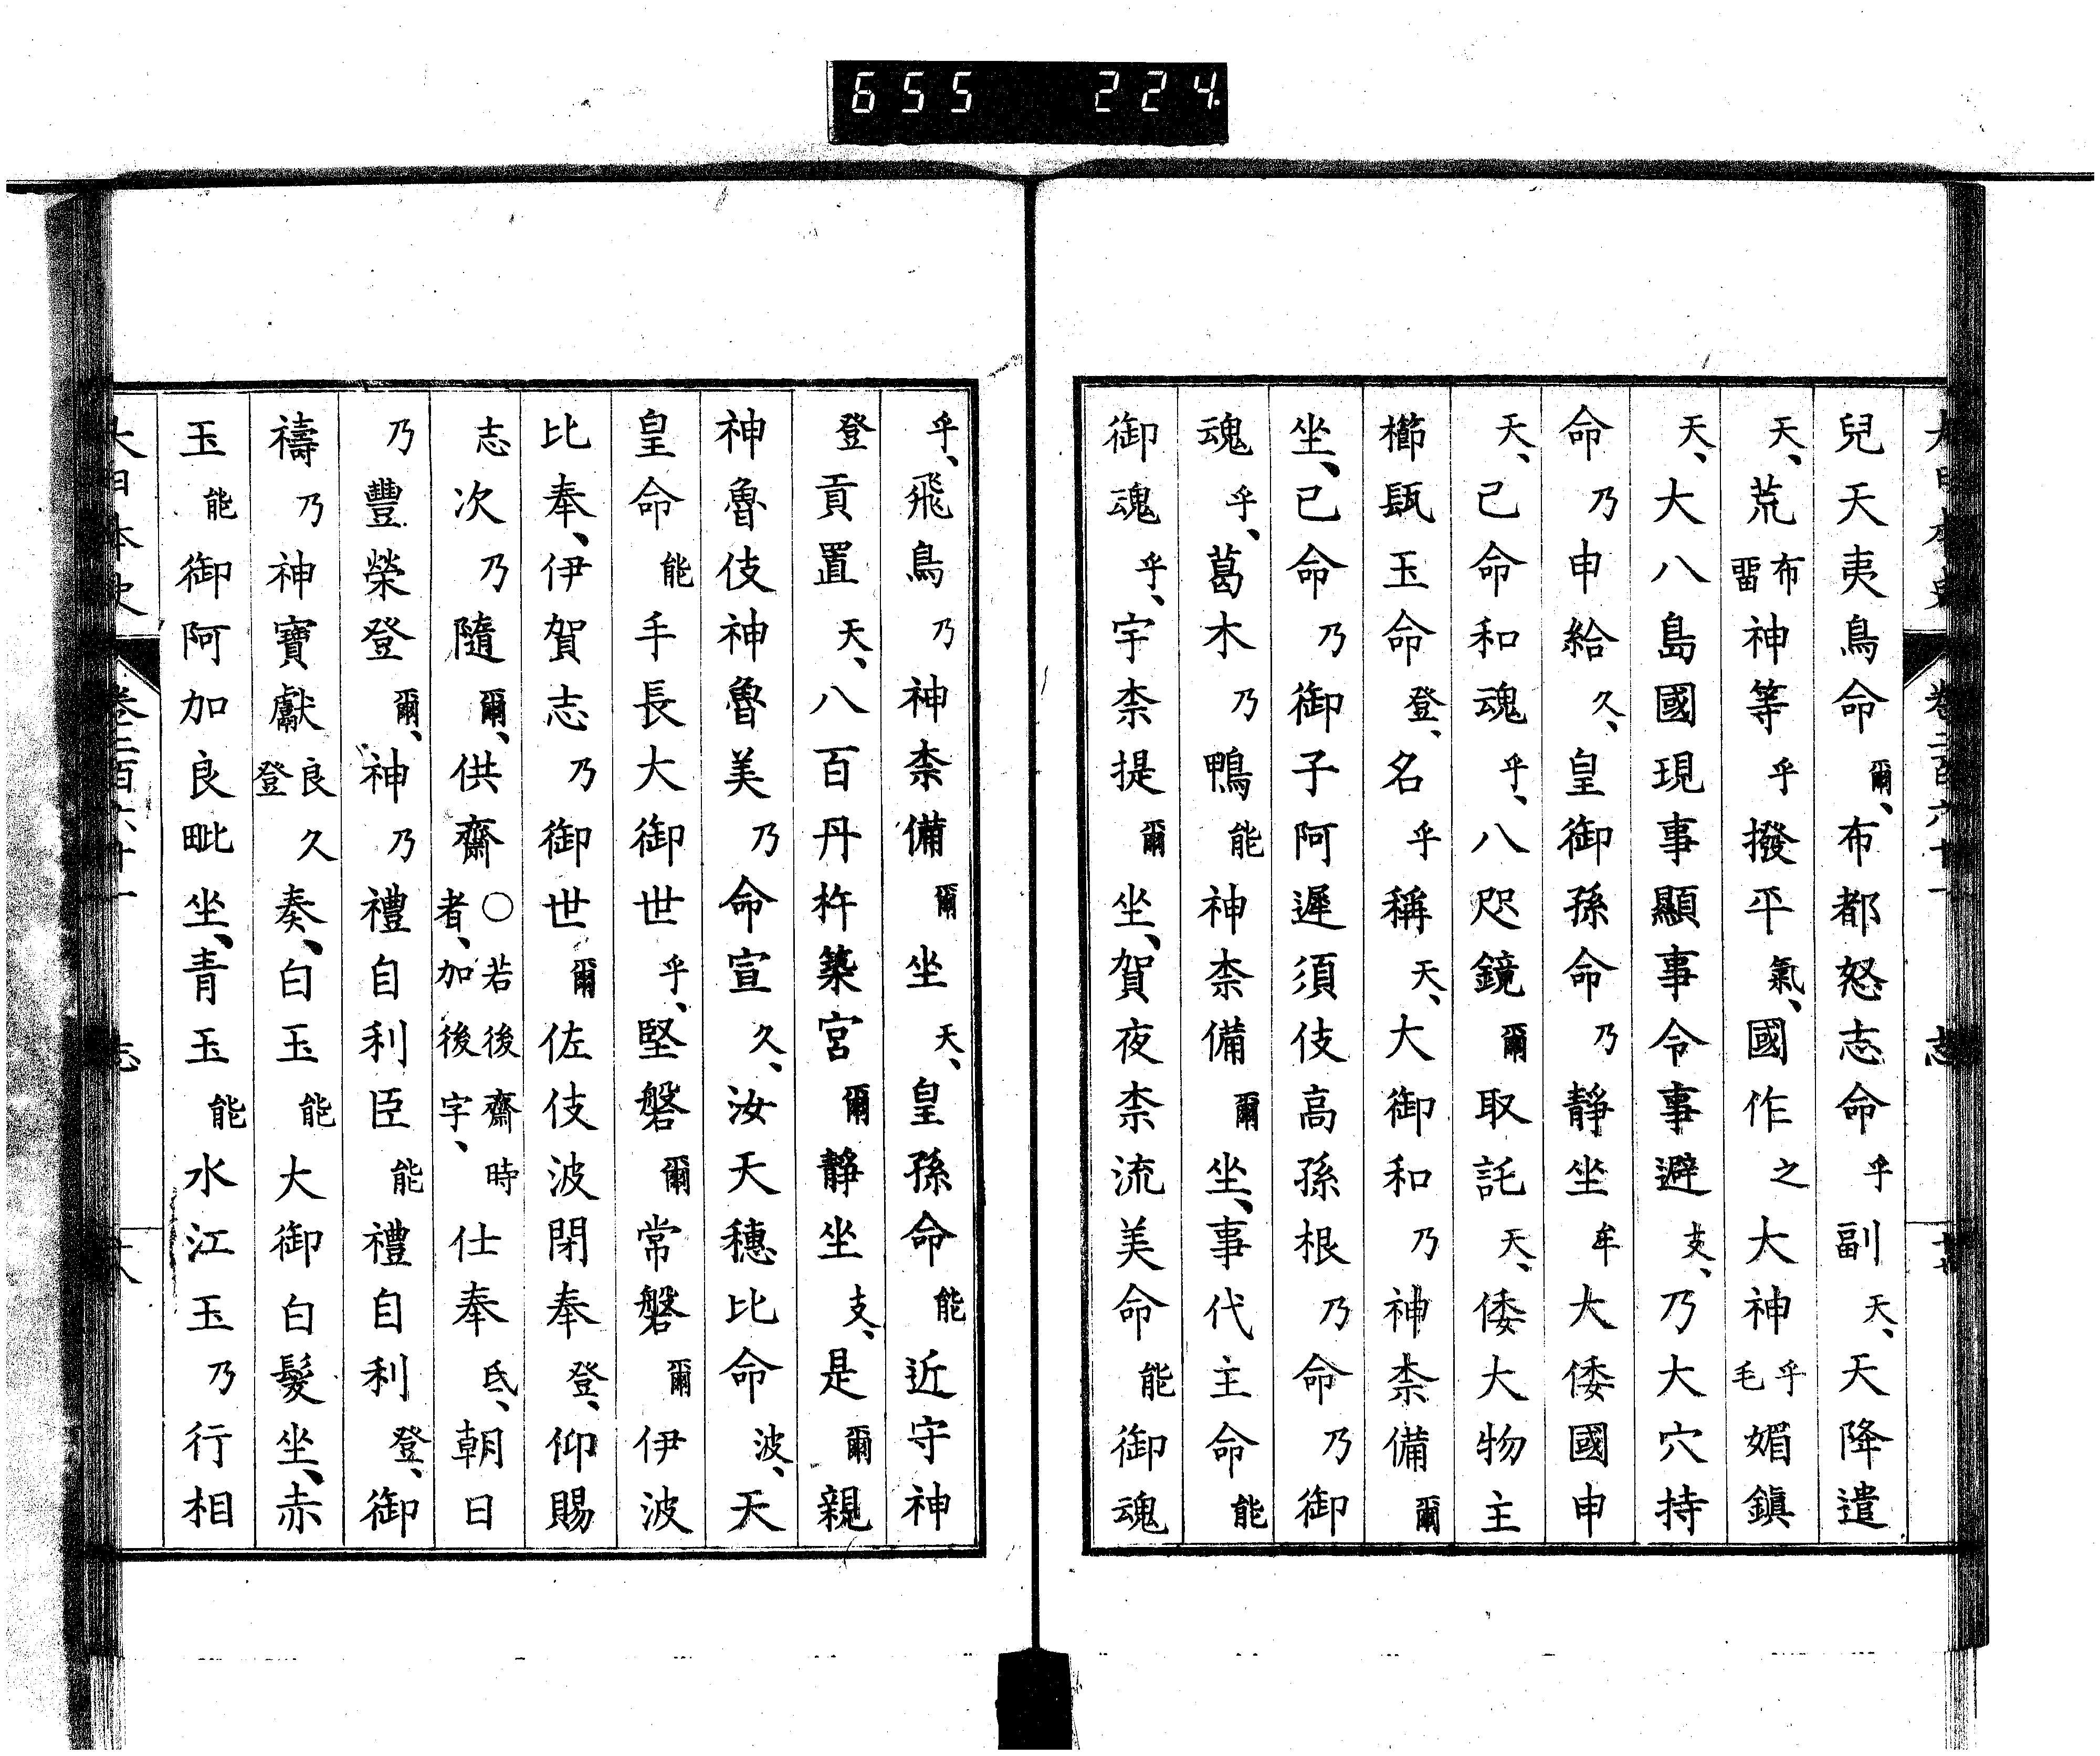 655 224
大日本史 卷二百六十一 志 十七
兒天夷鳥命爾、布都怒志命乎副天、天降遣
天、荒布留神等乎撥平氣、國作之大神乎毛媚鎭
天、大八島國現事顯事令事避支、乃大穴持
命乃申給久、皇御孫命乃靜坐牟大倭國申
天、己命和魂乎、八咫鏡爾取託天、倭大物主
櫛瓺玉命登、名乎稱天、大御和乃神柰備爾
坐、己命乃御子阿遲須伎高孫根乃命乃御
魂乎、葛木乃鴨能神柰備爾坐、事代主命能
御魂乎、宇柰提爾坐、賀夜柰流美命能御魂
乎、飛鳥乃神柰備爾坐天、皇孫命能近守神
登貢置天、八百丹杵築宮爾靜坐支、是爾親
神魯伎神魯美乃命宣久、汝天穗比命波、天
皇命能手長大御世乎、堅磐爾常磐爾伊波
比奉、伊賀志乃御世爾佐伎波閉奉登、仰賜
志次乃隨爾、供齋〇若後齋時者、加後字、仕奉氐、朝日
乃豐榮登爾、神乃禮自利臣能禮自利登、御
禱乃神寶獻良久登奏、白玉能大御白髮坐、赤
玉能御阿加良毗坐、青玉能水江玉乃行相
大日本史 卷二百六十一 志 十八